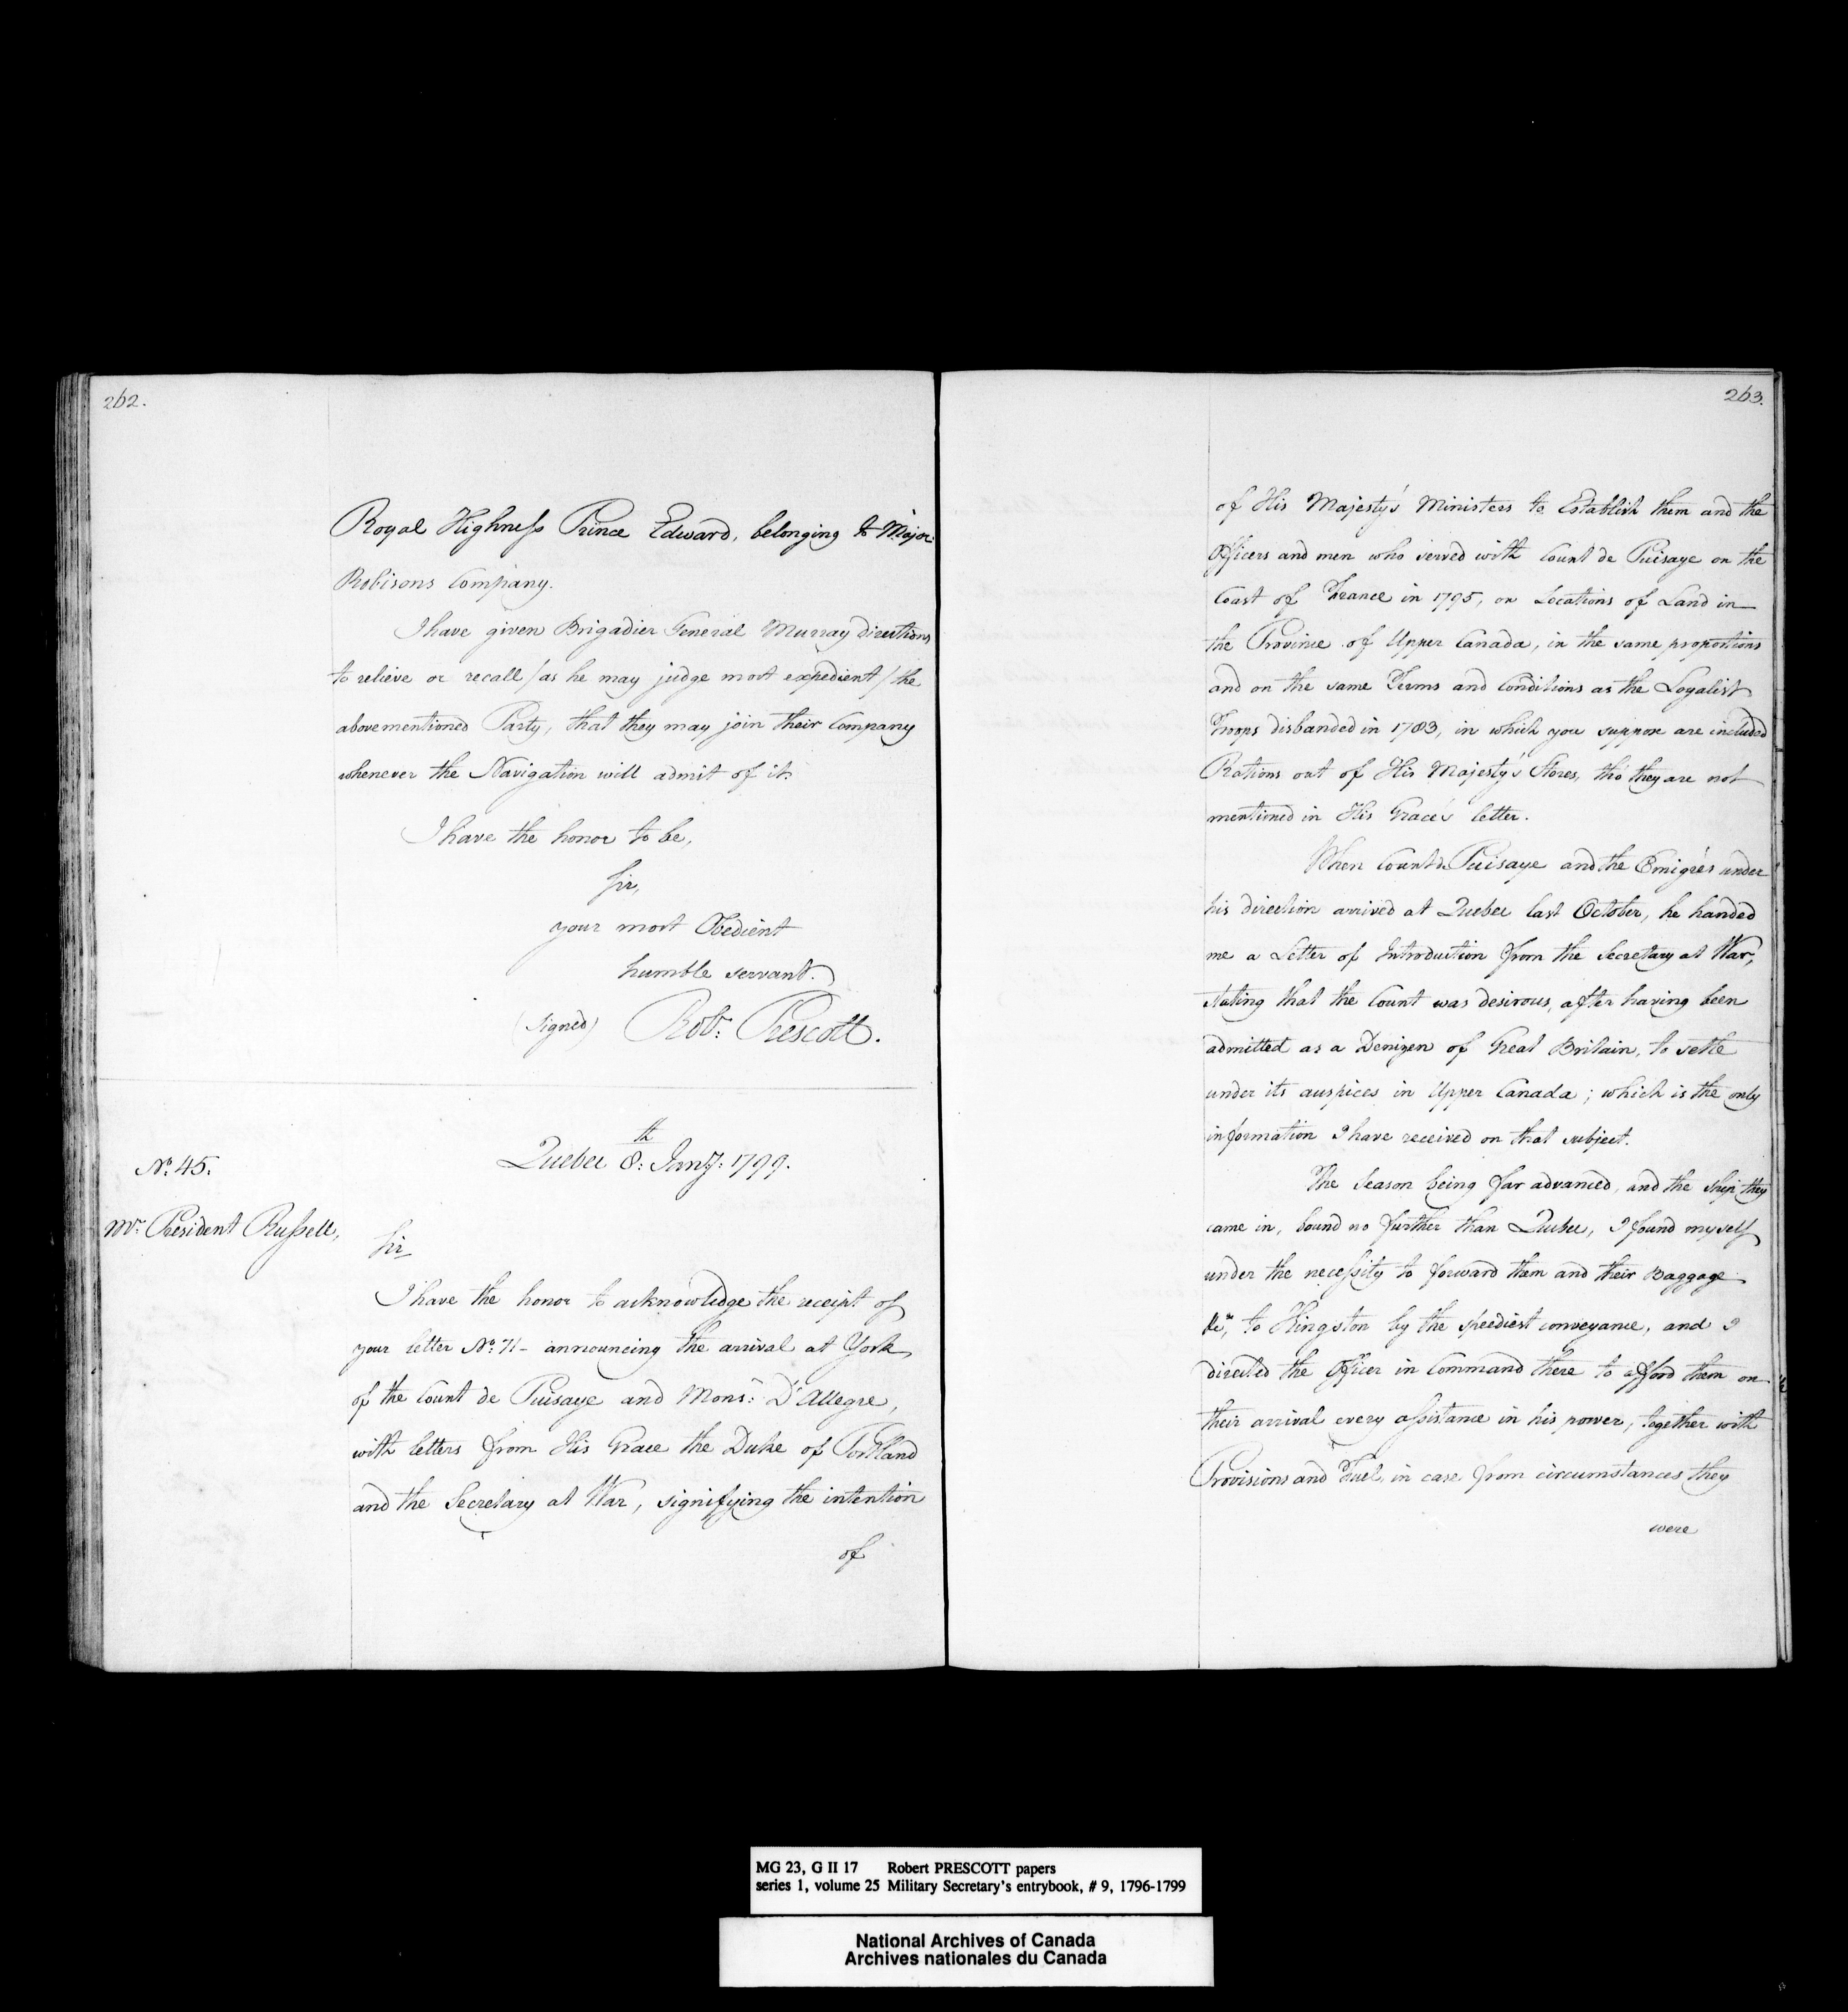 262.
Royal Highness Prince Edward, belonging to Major
Robisons Company.
I have given Brigadier General Murray directions
to relieve or recall /as he may judge most expedient/ the
abovementioned Party, that they may join their Company
whenever the Navigation will admit of it.
I have the honor to be,
Sir,
your most Obedient
humble servant.
(signed) Robt. Prescott.
No. 45.
Quebec 8th: Jany: 1799.
Mr. President Russell,
Sir
I have the honor to acknowledge the receipt of
your letter No. 71 - announcing the arrival at York
of the Count de Puisaye and Monsr: D'Allegre,
with letters from His Grace the Duke of Portland
and the Secretary at War, signifying the intention
of
263.
of His Majesty's Ministers to Establish them and the
Officers and men who served with Count de Puisaye on the
Coast of France in 1795, on Locations of Land in
the Province of Upper Canada, in the same proportions
and on the same Terms and Conditions as the Loyalist
Troops disbanded in 1783, in which you suppose are included
Rations out of His Majesty's Stores, tho they are not
mentioned in His Grace's letter.
When Count de Puisaye and the Emigrés under
his direction arrived at Quebec last October, he handed
me a Letter of Introduction from the Secretary at War,
stating that the Count was desirous, after having been
admitted as a Denizen of Great Britain, to settle
under its auspices in Upper Canada; which is the only
information I have received on that subject.
The Season being far advanced, and the ship they
came in, bound no further than Quebec, I found myself
under the necessity to forward them and their Baggage
&ca, to Kingston by the speediest conveyance, and I
directed the Officer in Command there to afford them on
their arrival every assistance in his power, together with
Provisions and Fuel, in case from circumstances they
were
MG 23, G II 17 Robert PRESCOTT papers
series 1, volume 25 Military Secretary's entrybook, # 9, 1796-1799
National Archives of Canada
Archives nationales du Canada